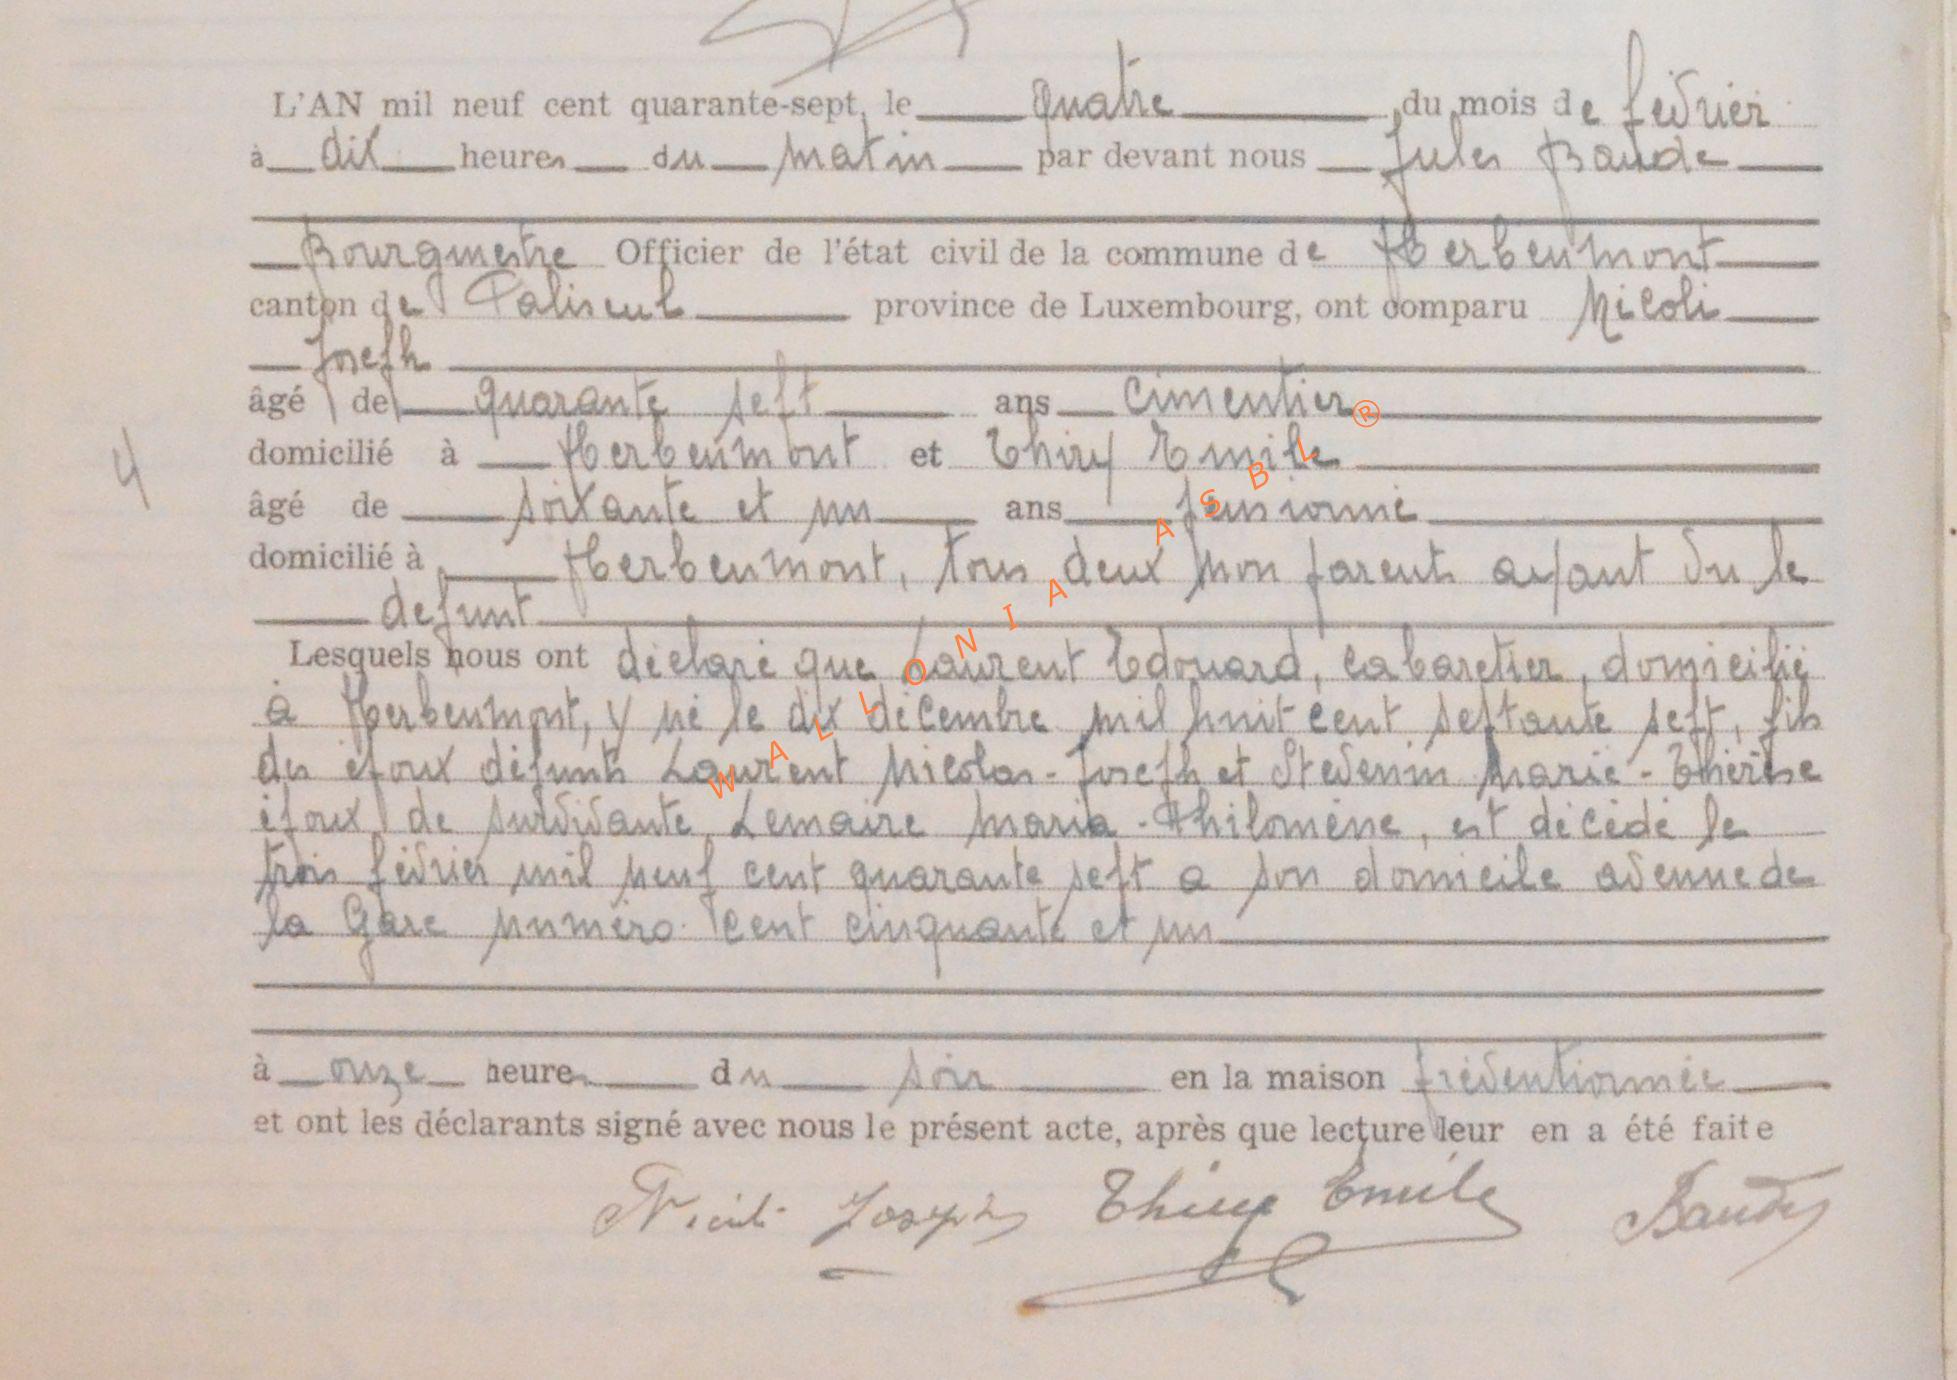 L'AN mil neuf cent quarante-sept, le quatre du mois de février
à dix heures du matin par devant nous Jules Baude
Bourgmestre Officier de l'état civil de la commune de Herbeumont
canton de Paliseul province de Luxembourg, ont comparu Nicoli
Joseph
âgé de quarante sept ans cimentier
domicilié à Herbeumont et Thiry Emile
4
âgé de soixante et un ans pensionné
domicilié à Herbeumont, tous deux non parents ayant vu le
défunt
Lesquels nous ont déclaré que Laurent Edouard, cabaretier, domicilié
à Herbeumont, y né le dix décembre mil huit cent septante sept, fils
des époux défunts Laurent Nicolas-Joseph et Stevenin Marie-Thérèse
époux de survivante Lemaire Maria-Philomène, est décédé le
trois février mil neuf cent quarante sept a son domicile avenue de
la Gare numéro cent cinquante et un
à onze heures du soir en la maison préventionnée
et ont les déclarants signé avec nous le présent acte, après que lecture leur en a été faite
Nicoli Joseph Thiry Emile Baude
WALLONIA ASBL ®